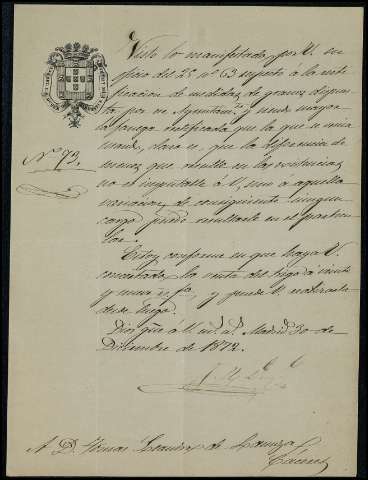 Nº 73.
Visto lo manifestado por V. en
oficio del 25 nº 63 respecto á la recti
ficacion de medidas de granos dispues
ta por ese Ayuntamto y siendo mayor
la fanega rectificada que la que se venia
usando, claro es, que la diferencia de
menos que resulte en las existencias
no es imputable á V, sino á aquella
variacion, de consiguiente ningun
cargo puede resultarle en el particu
lar.
Estoy conforme en que haya V.
contratado la venta del trigo á veinte
y nueve rs fa, y puede V. realizarla
desde luego.
Dios gue á V. ms as Madrid 30 de
Diciembre de 1872.
A D. Tomas Leandro de
Cáceres